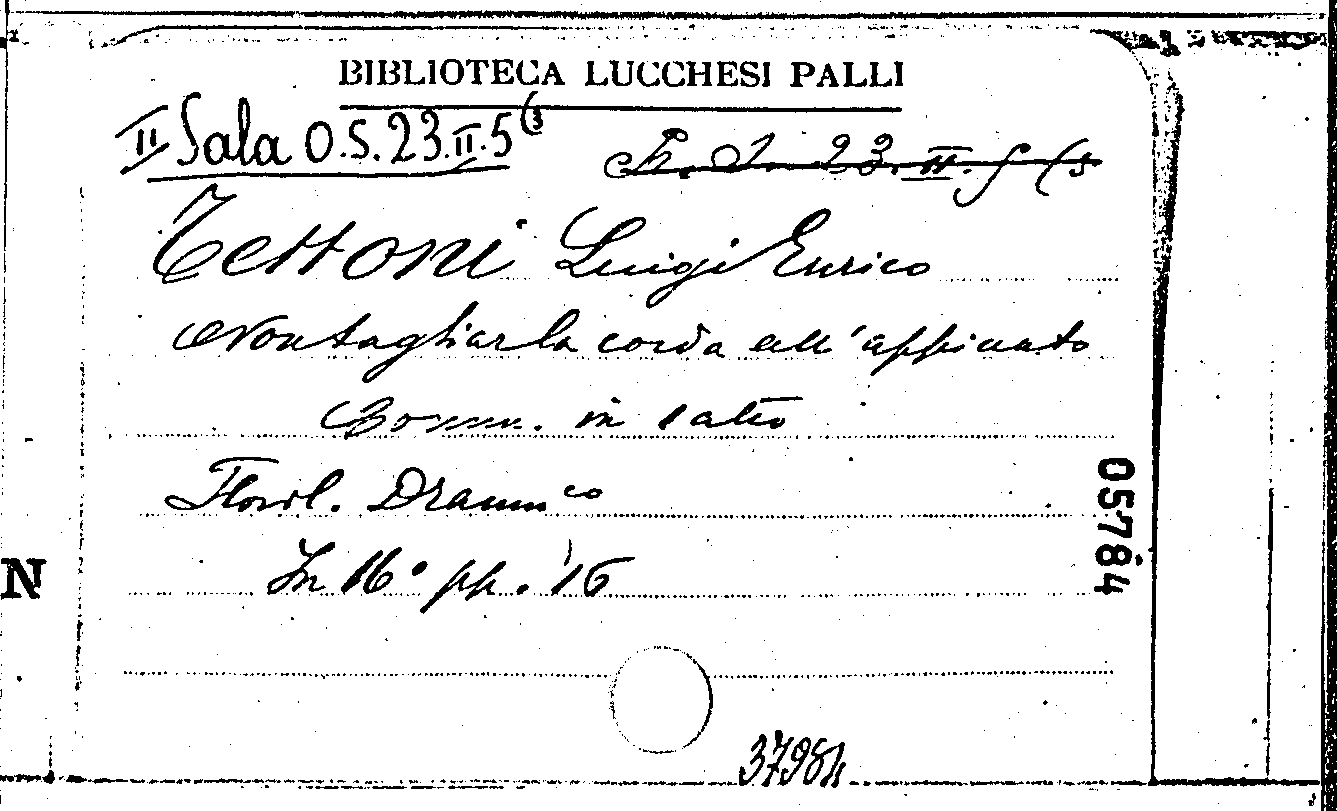 BIBLIOTECA LUCCHESI PALLI
II Sala O.S.23.II.5(3
23.II.5(3
Tettoni Luigi Enrico
Non tagliar la corda all'appiccato
Comm. in 1 atto
Floril. Dramm.co
In 16° pp. 16
05784
N
37984